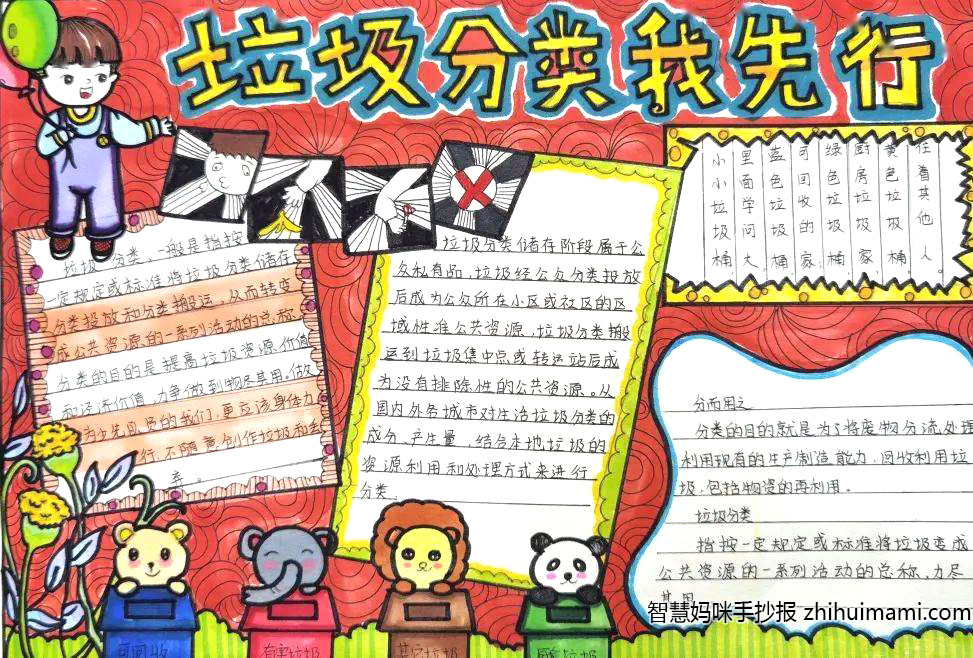 垃圾分类我先行
垃圾分类，一般是指按
一定规定或标准将垃圾分类储存
分类投放和分类搬运，从而转变
成公共资源的一系列活动的总称
分类的目的是提高垃圾资源价值
和经济价值，力争做到物尽其用，做
为少先队员的我们，更应该身体力
行，不随意创作垃圾和丢
弃。
垃圾分类储存阶段属于公
众私有品，垃圾经公众分类投放
后成为公众所在小区或社区的区
域性准公共资源，垃圾分类搬
运到垃圾集中点或转运站后成
为没有排除性的公共资源。从
国内外各城市对生活垃圾分类的
成分、产生量，结合本地垃圾的
资源利用和处理方式来进行
分类。
住着其他人。
黄色垃圾桶，
厨房垃圾家。
绿色垃圾桶，
可回收的家；
蓝色垃圾桶
里面学问大
小小垃圾桶
分而用之
分类的目的就是为了将废物分流处理
利用现有的生产制造能力，回收利用垃
圾，包括物资的再利用。
垃圾分类
指按一定规定或标准将垃圾变成
公共资源的一系列活动的总称，力尽
其用
可回收
有害垃圾
其它垃圾
厨余垃圾
智慧妈咪手抄报 zhihuimami.com